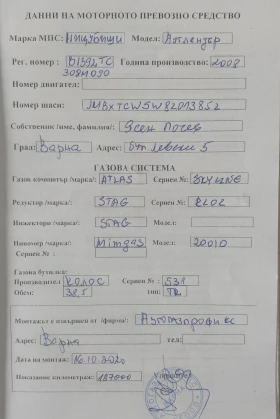 ДАННИ НА МОТОРНОТО ПРЕВОЗНО СРЕДСТВО
Марка МПС: Мицубиши Модел: Аутлендер
Рег. номер : В1392ТС Година производство: 2008
Номер двигател:
Номер шаси:
Собственик /име, фамилия/: Ясен
Град: Варна Адрес: 5
ГАЗОВА СИСТЕМА
Газов компютър /марка/: ATLAS Сериен №:
Редуктор /марка/: STAG Сериен №:
Инжектори /марка/: STAG Модел:
Нивомер /марка/: Mimgas Модел:
Сериен № :
Газова бутилка:
Производител КОЛОС Сериен № : 538
Обем: 38,5 тип: TR
Монтажът е извършен от /фирма/: Аутогазпрофикс
Адрес: Варна тел:
Дата на монтаж: 16.10.2020
Показание километраж: 187000